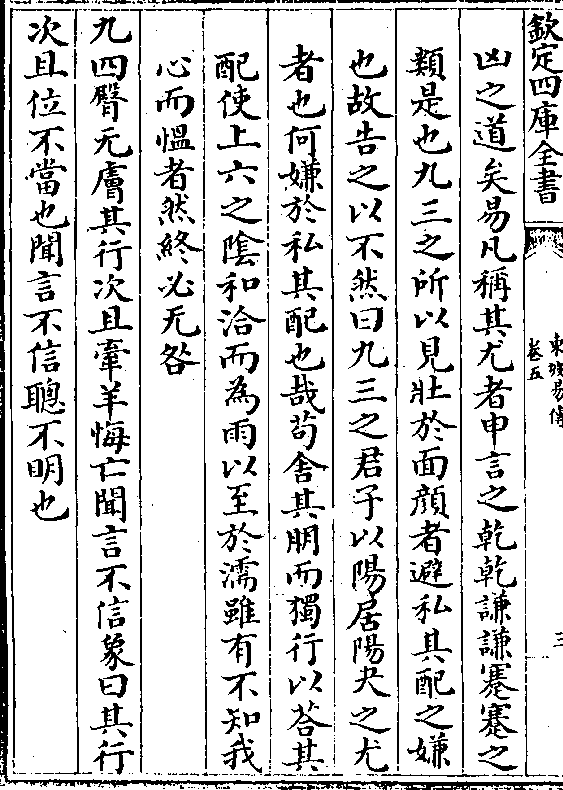 欽定四庫全書
東坡易傳
卷五
三
凶之道矣易凡稱其尤者申言之乾乾謙謙蹇蹇之
類是也九三之所以見壯於面顔者避私其配之嫌
也故告之以不然曰九三之君子以陽居陽夬之尤
者也何嫌於私其配也哉苟舍其朋而獨行以荅其
配使上六之陰和洽而為雨以至於濡雖有不知我
心而愠者然終必无咎
九四臀无膚其行次且牽羊悔亡聞言不信象曰其行
次且位不當也聞言不信聰不明也